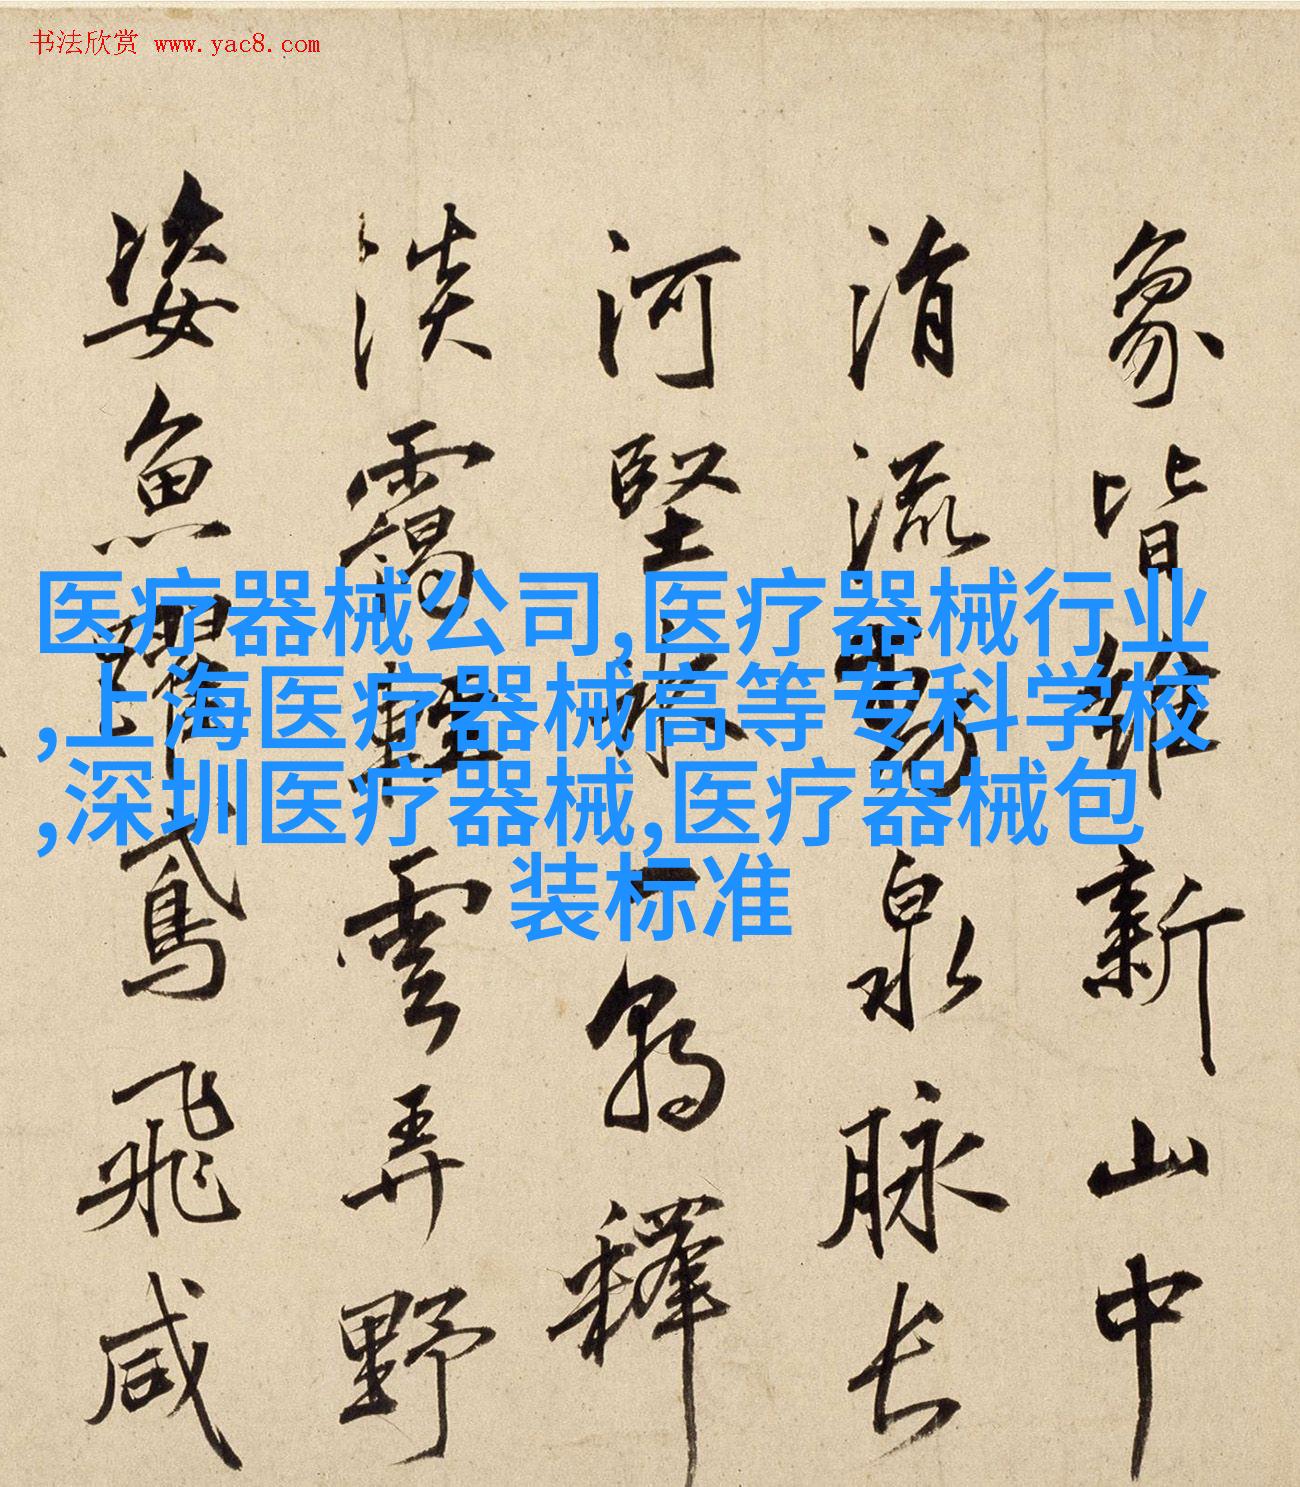 书法欣赏 www.yac8.com
象皆維新山中
涓流動泉脉長
河堅冰一釋
淡靄輕雲弄野
姿魚躍鳶飛咸
医疗器械公司,医疗器械行业
,上海医疗器械高等专科学校
,深圳医疗器械,医疗器械包
装标准